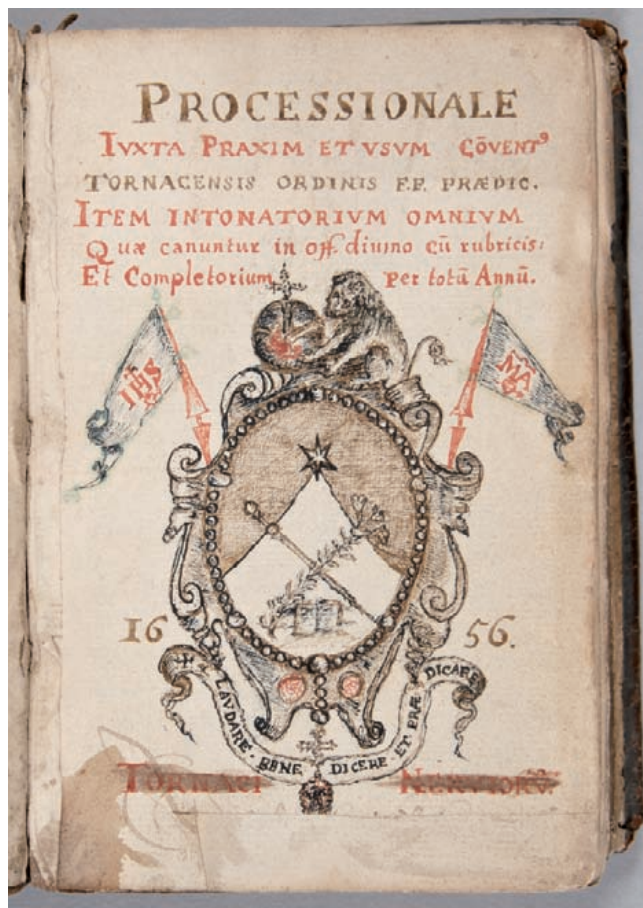 PROCESSIONALE
IVXTA PRAXIM ET VSVM CŌVENTꝰ
TORNACENSIS ORDINIS F.F. PRÆDIC.
ITEM INTONATORIVM OMNIVM
Quæ canuntur in off. diuino cū rubricis:
Et Completorium per totū Annū.
IHS
MA
16 56.
LAVDARE. BENE DICERE ET PRÆ DICARE
TORNACI NERVIORṼ.